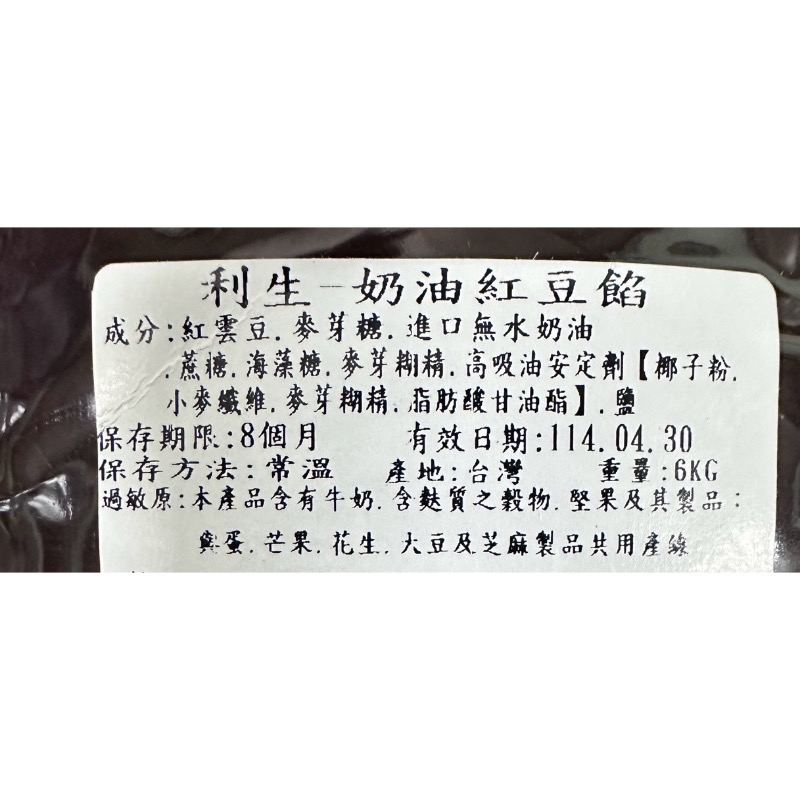 利生-奶油紅豆餡
成分:紅雲豆.麥芽糖.進口無水奶油
.蔗糖.海藻糖.麥芽糊精.高吸油安定劑【椰子粉.
小麥纖維.麥芽糊精.脂肪酸甘油酯】.鹽
保存期限:8個月 有效日期:114.04.30
保存方法:常溫 產地:台灣 重量:6KG
過敏原:本產品含有牛奶.含麩質之穀物.堅果及其製品:
與蛋.芒果.花生.大豆及芝麻製品共用產線